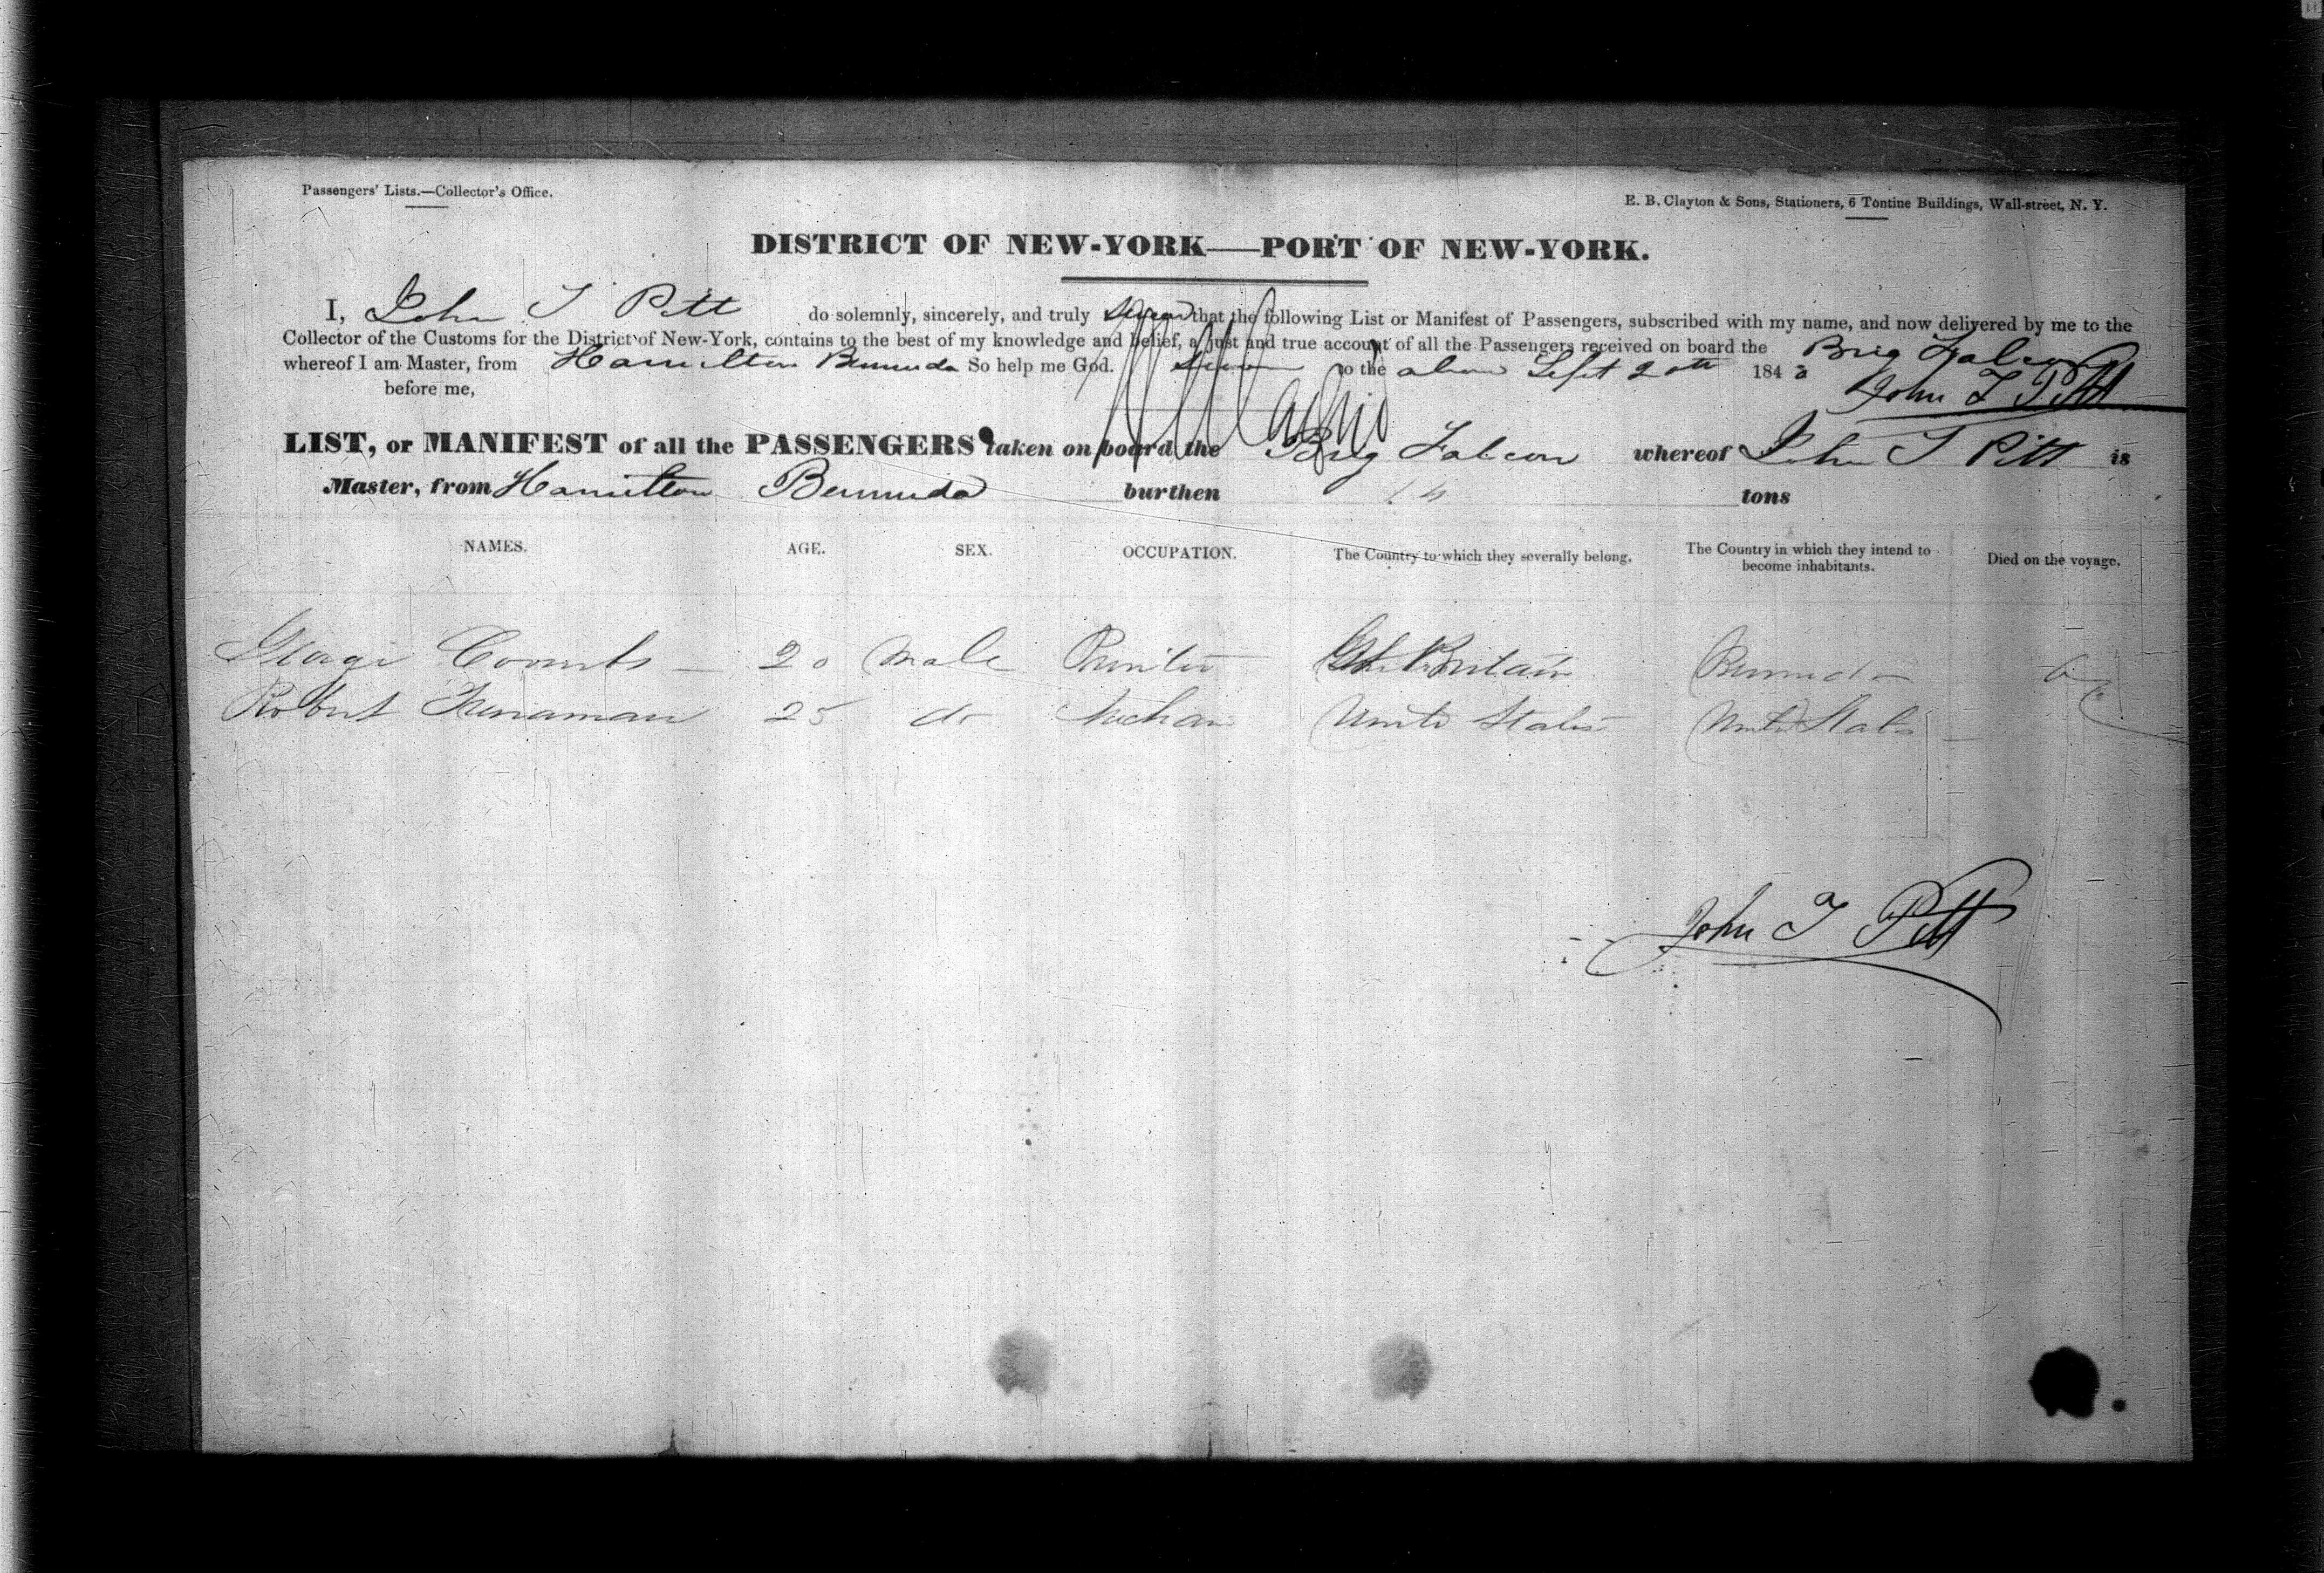 Passengers' Lists.—Collector's Office.
E. B. Clayton & Sons, Stationers, 6 Tontine Buildings, Wall-street, N. Y.
DISTRICT OF NEW-YORK—PORT OF NEW-YORK.
I, John T Pitt do solemnly, sincerely, and truly swear that the following List or Manifest of Passengers, subscribed with my name, and now delivered by me to the
Collector of the Customs for the District of New-York, contains to the best of my knowledge and belief, a just and true account of all the Passengers received on board the Brig Falcon
whereof I am Master, from Hamilton Bermuda So help me God. Sworn to the above Sept 20th 184
before me, John T Pitt
LIST, or MANIFEST of all the PASSENGERS taken on board the Brig Falcon whereof John T Pitt is
Master, from Hamilton Bermuda burthen tons
NAMES. AGE. SEX. OCCUPATION. The Country to which they severally belong. The Country in which they intend to become inhabitants. Died on the voyage.
George Coombs 20 Male Printer Gt Britain Bermuda
Robert 25 do United States United States
John T Pitt